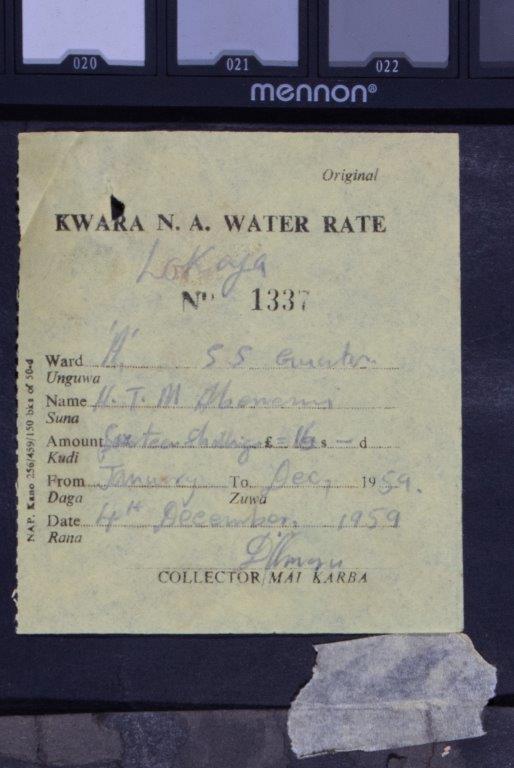 020 021 022
mennon®
Original
KWARA N. A. WATER RATE
LoKoja
Nº 1337
Ward 'A' S S
Unguwa
Name T. M
Suna
Amount Sixteen Shillings £ = 16 s — d
Kudi
From January To Dec, 1959.
Daga Zuwa
Date 4th December, 1959
Rana
COLLECTOR/MAI KARBA
NAP. Kano 256/459/150 bks of 50-d